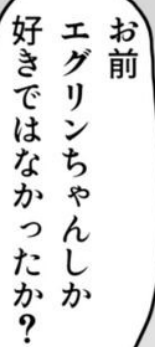 お前
エグリンちゃんしか
好きではなかったか？